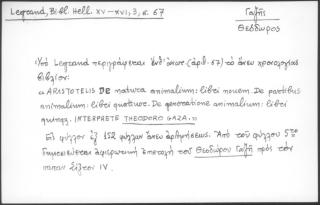 Legrand, Bibl. Hell. XV–XVI, 3, σ. 67
Γαζῆς
Θεόδωρος
Ὑπὸ Legrand περιγράφεται ἐνθ' ἀνωτ. (ἀρ. 67) τὸ ἄνευ χρονολογίας
βιβλίον:
« ARISTOTELIS DE natura animalium: libri nouem. De partibus
animalium: libri quattuor. De generatione animalium: libri
quinque. INTERPRETE THEODORO GAZA. »
Εἰς φύλλον ἐξ 152 φύλλων ἄνευ ἀριθμήσεως. Ἀπὸ τοῦ φύλλου 5
δημοσιεύεται ἀφιερωτικὴ ἐπιστολὴ τοῦ Θεοδώρου Γαζῆ πρὸς τὸν
πάπαν Σίξτον IV.